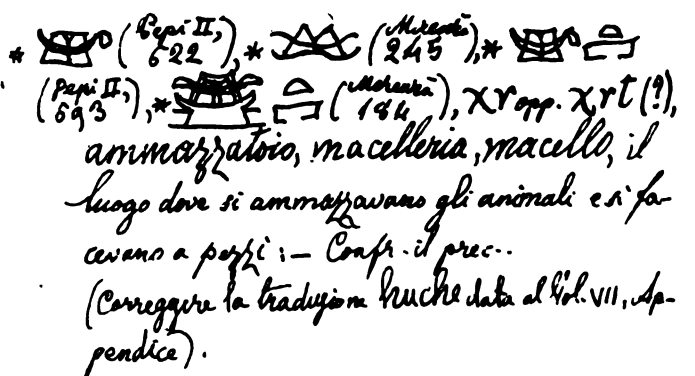 * (Pepi II, 622), * (Mirenrâ 245), *
(Pepi II, 693), * (Merenrâ 184), χr opp. χrt (?),
ammazzatoio, macelleria, macello, il
luogo dove si ammazzavano gli animali e si fa-
cevano a pezzi :— Confr. il prec..
(Correggere la traduzione huche data al Vol. VII, Ap-
pendice).